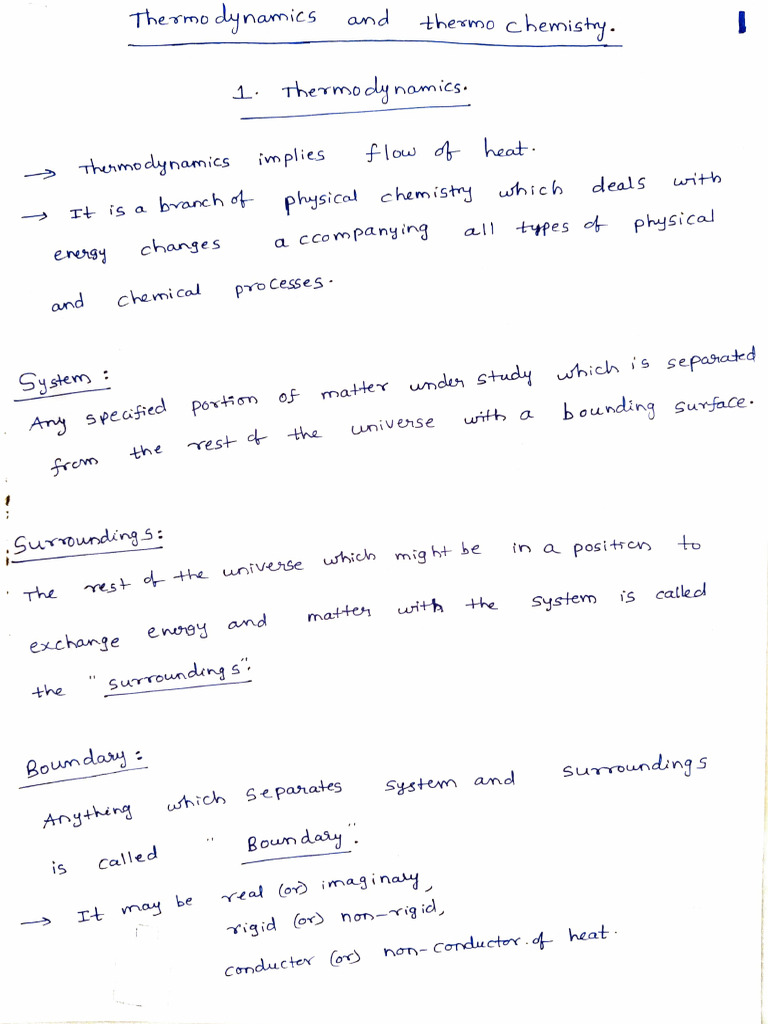 Thermodynamics and thermo chemistry.
1
1. Thermodynamics.
→ Thermodynamics implies flow of heat.
→ It is a branch of physical chemistry which deals with
energy changes accompanying all types of physical
and chemical processes.
System:
Any specified portion of matter under study which is separated
from the rest of the universe with a bounding surface.
Surroundings:
The rest of the universe which might be in a position to
exchange energy and matter with the system is called
the "surroundings".
Boundary:
Anything which separates system and surroundings
is called "Boundary".
→ It may be real (or) imaginary,
rigid (or) non-rigid,
conducter (or) non-conductor of heat.